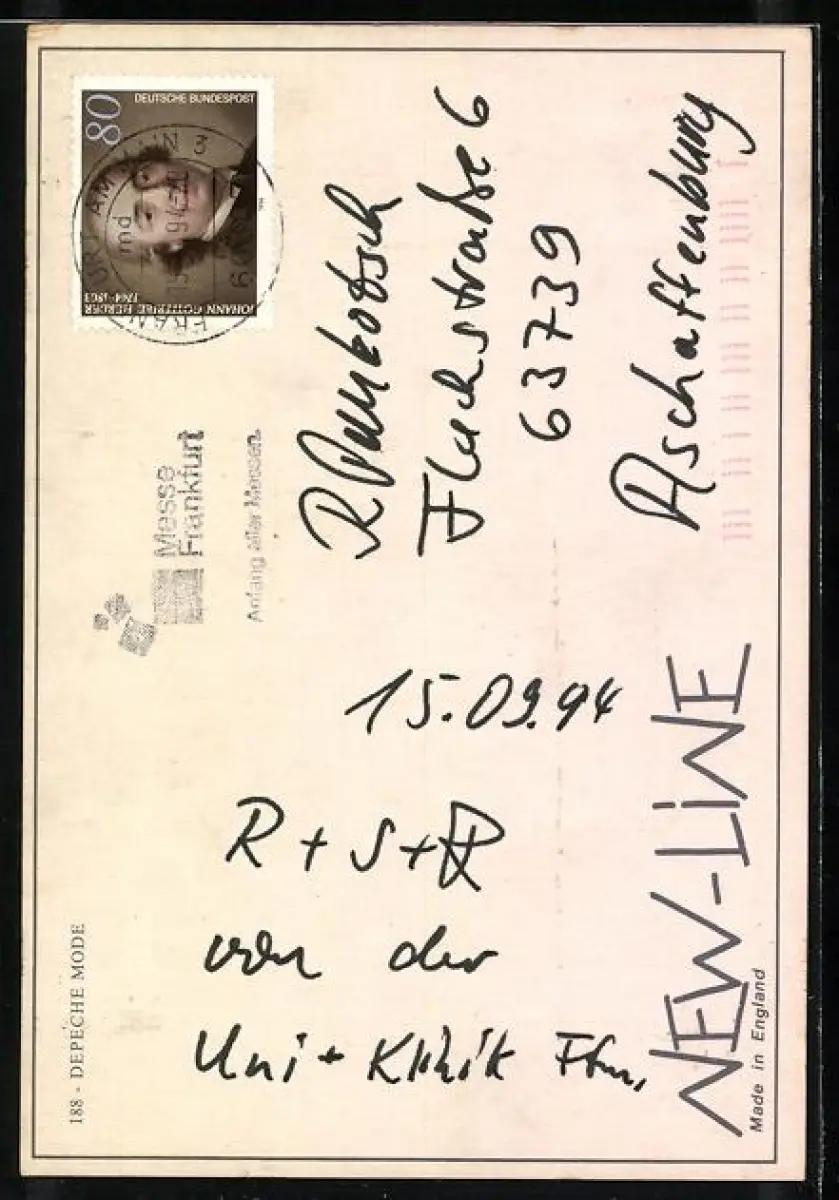 188 - DEPECHE MODE
15.09.94
R + S +
von der
Uni + Klinik Ffm.
NEW-LINE
Made in England
80
DEUTSCHE BUNDESPOST
JOHANN GOTTFRIED HERDER
1744-1803
FRANKFURT AM MAIN 3
md
Messe
Frankfurt
Anfang aller Messen.
R
6
63739
Aschaffenburg